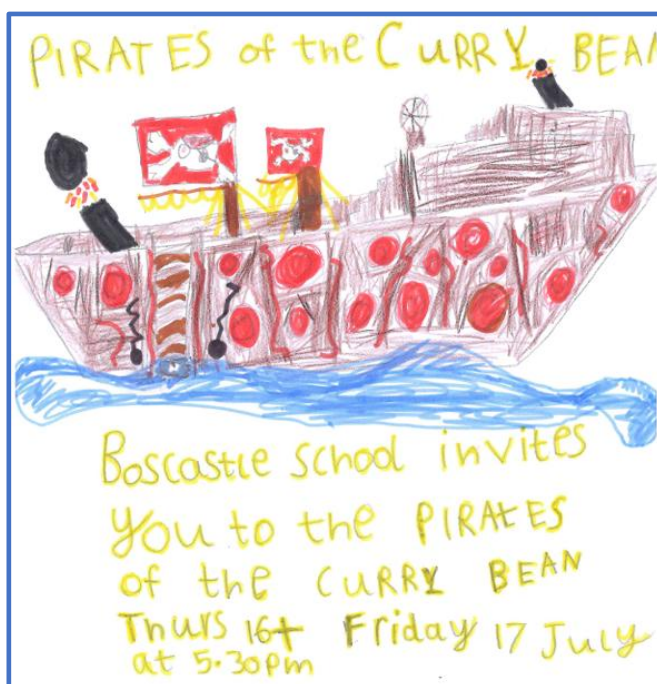 PIRATES of the CURRY BEAN
Boscastle school invites
you to the PIRATES
of the CURRY BEAN
Thurs 16+ Friday 17 July
at 5.30pm